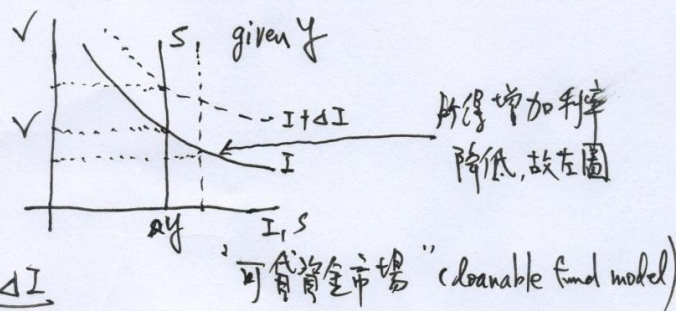 √ S given y
I+ΔI
√
I
所得增加利率
降低,故左圖
ay I, S
"可貸資金市場" (loanable fund model)
ΔI